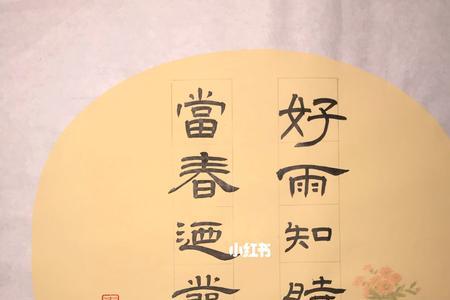 好雨知時
當春迺發
小红书